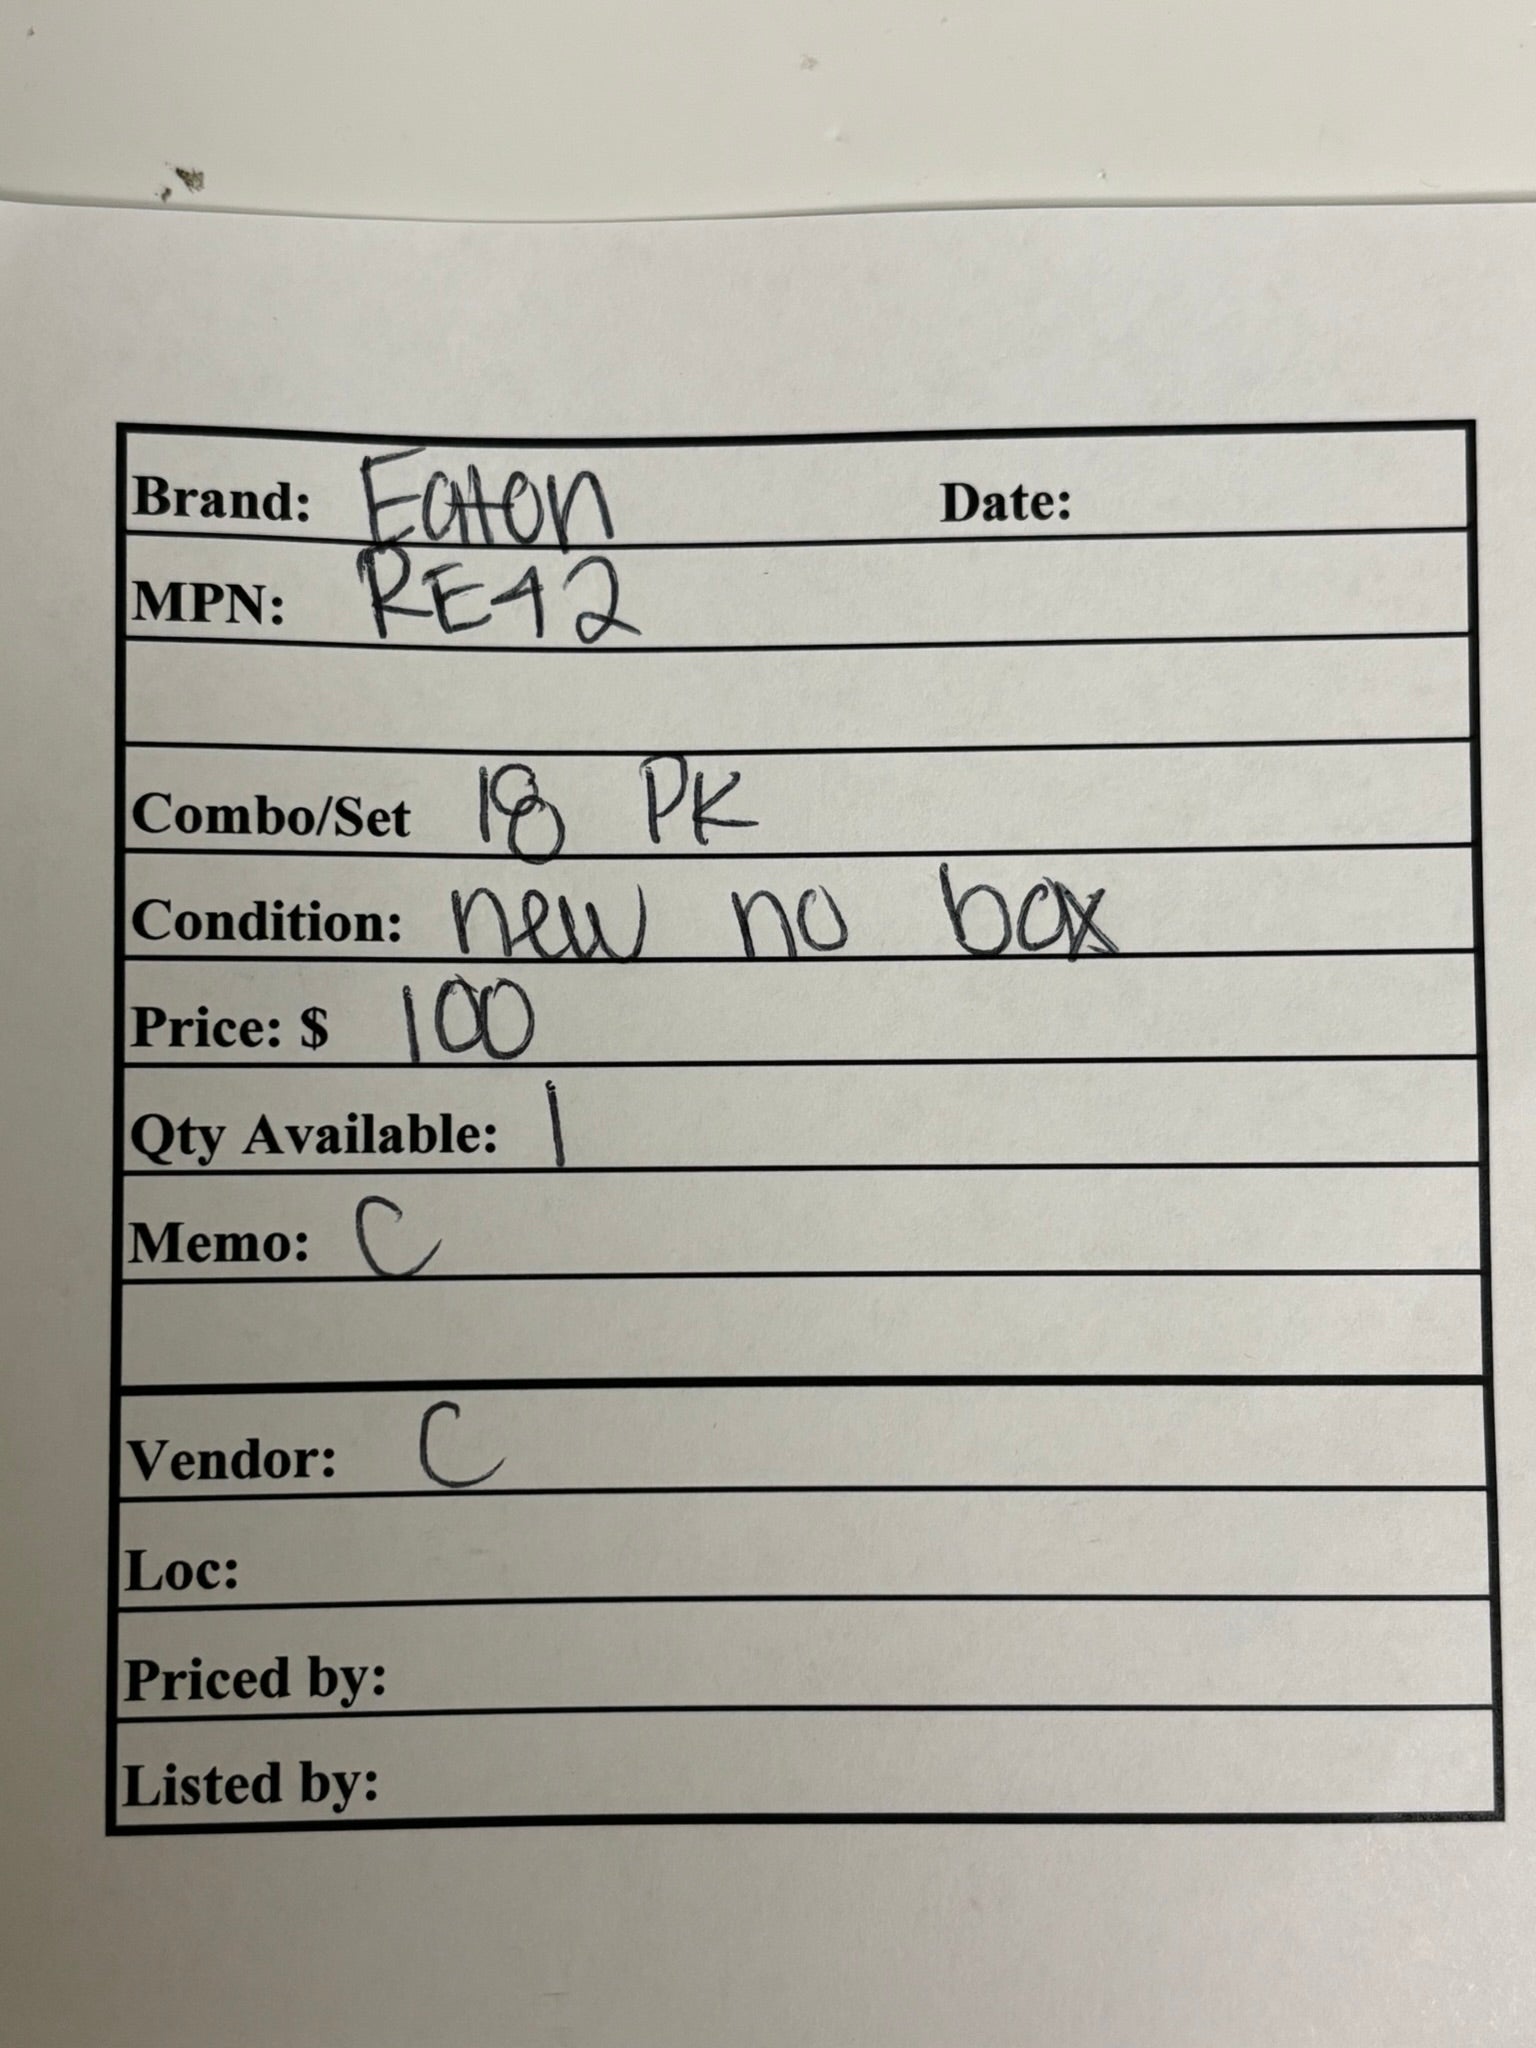 Brand: Eaton Date:
MPN: RE42
Combo/Set 18 PK
Condition: new no box
Price: $ 100
Qty Available: 1
Memo: C
Vendor: C
Loc:
Priced by:
Listed by: